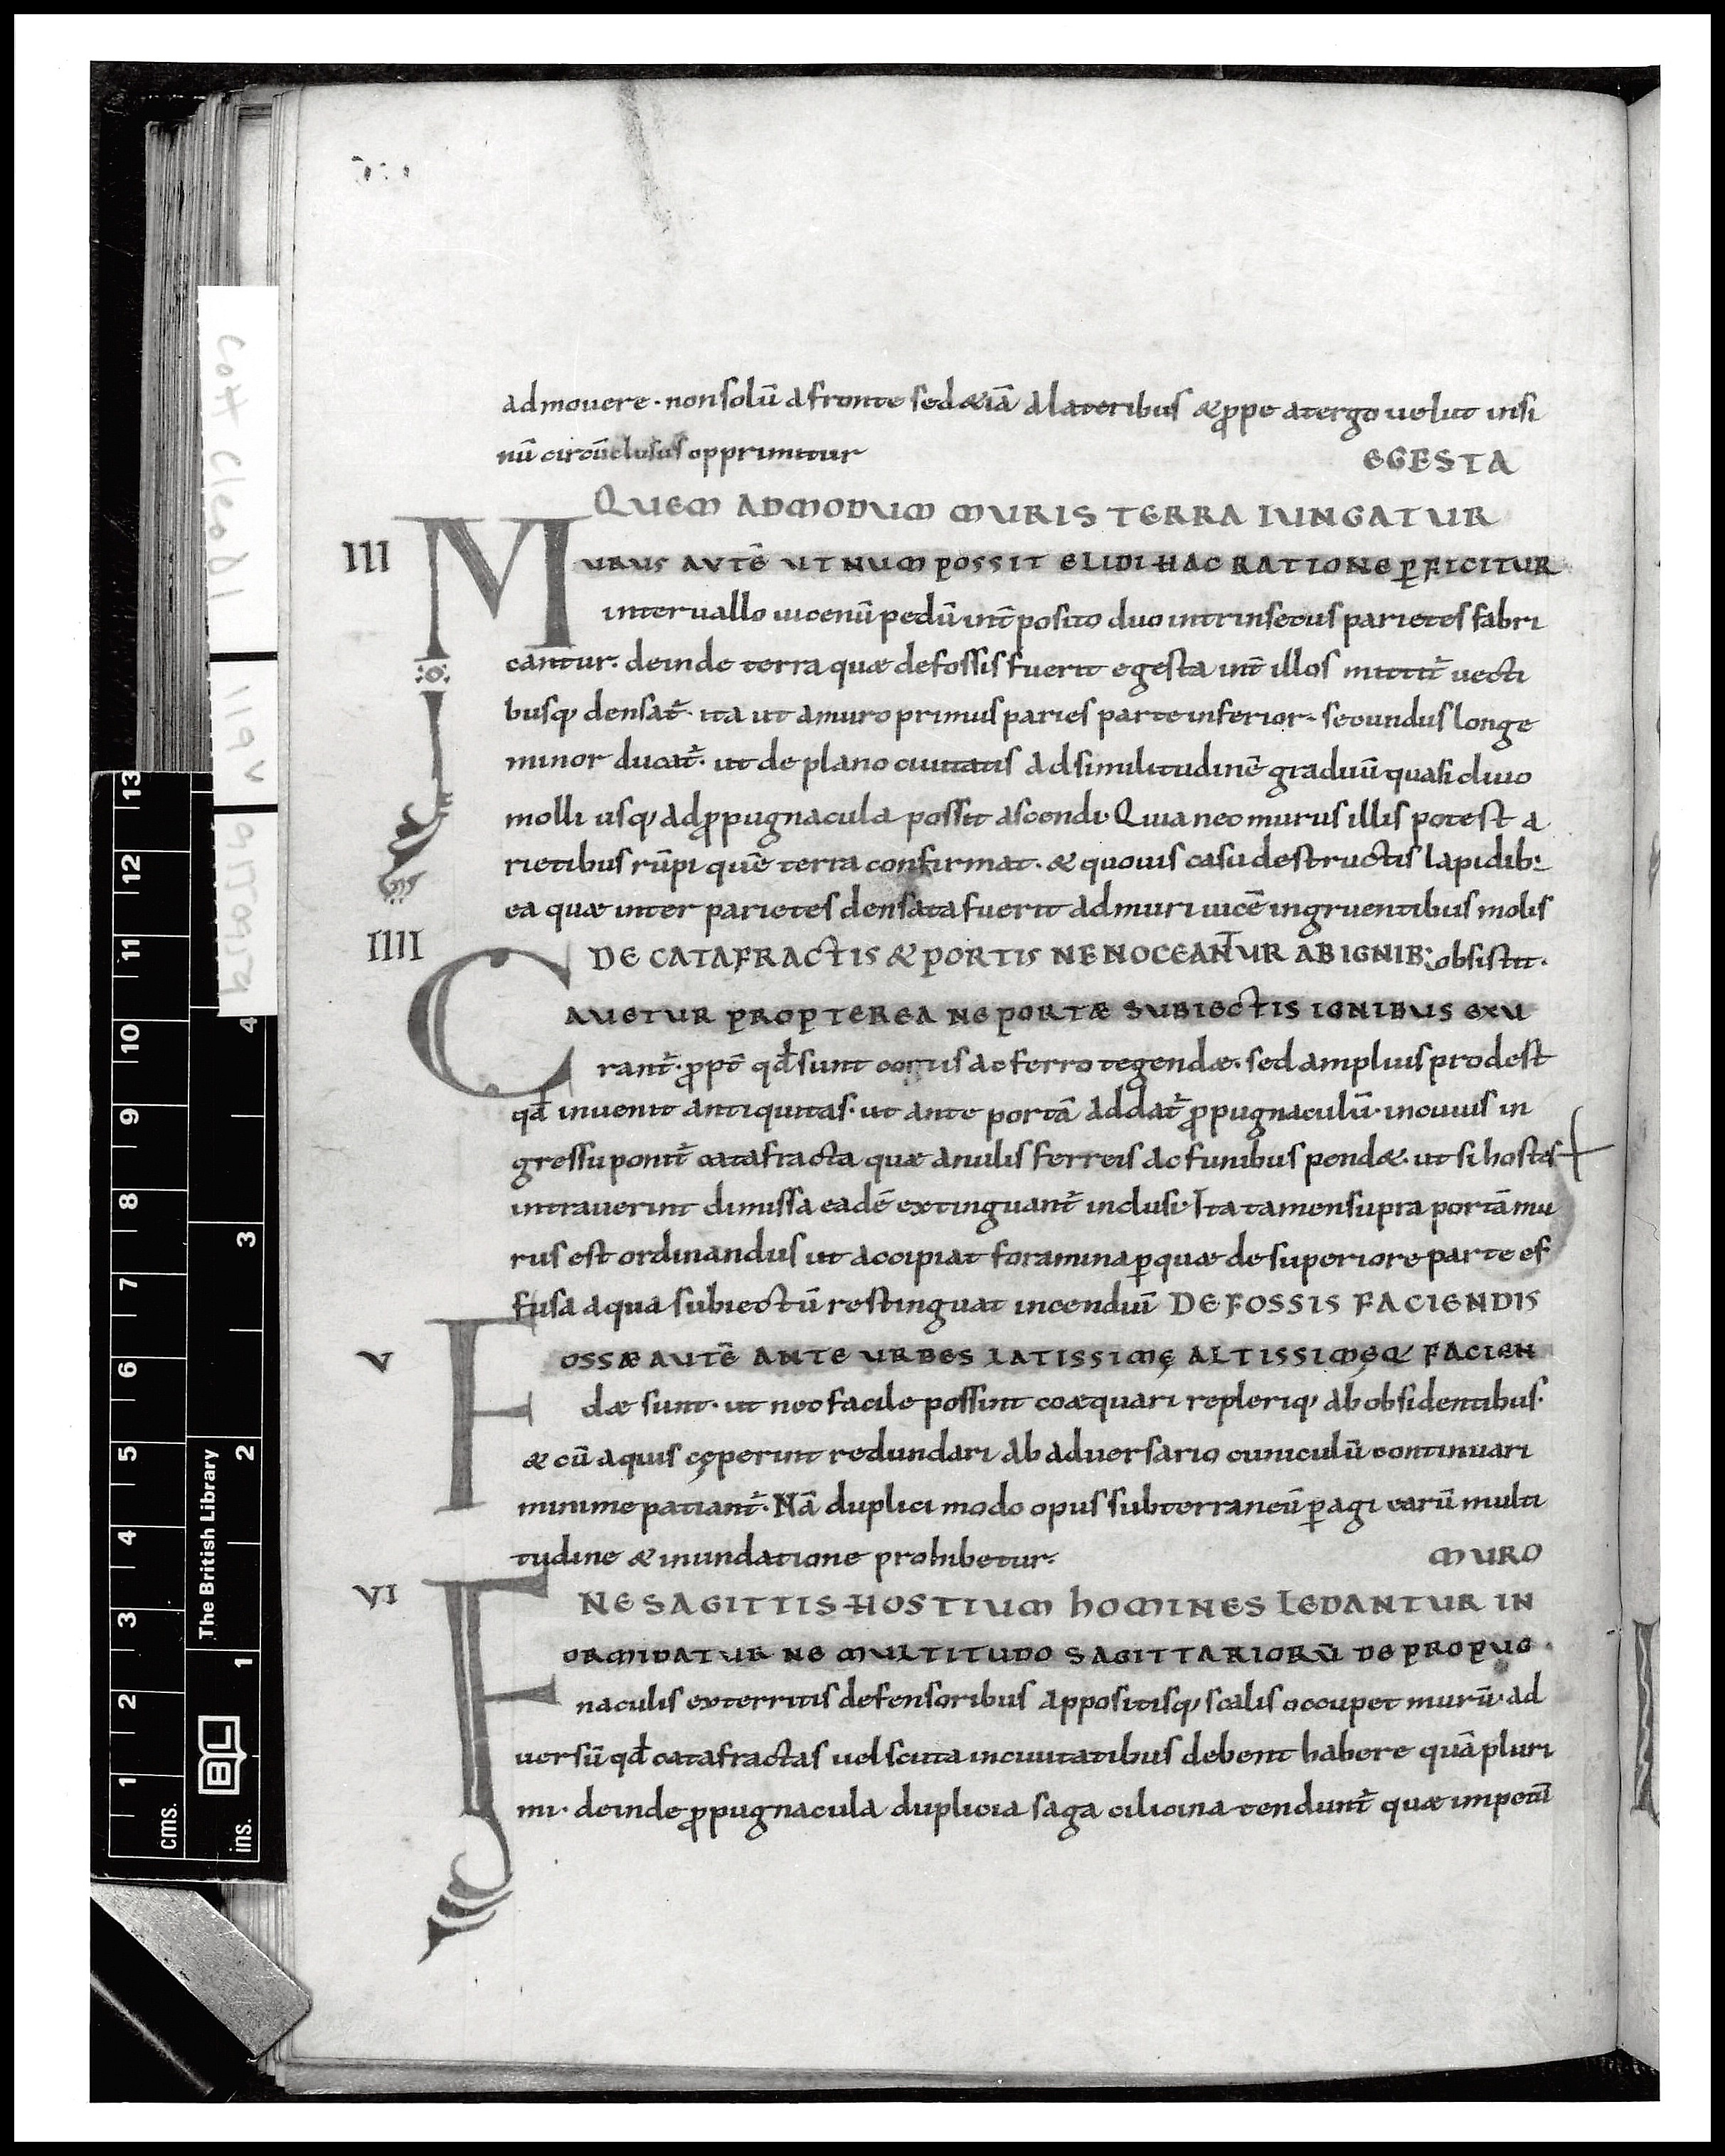 admouere · non solū a fronte sed &iā a lateribus & ꝓpe a tergo uelut in si
nū circūclusus opprimitur EGESTA
QUEM ADMODUM MURIS TERRA IUNGATUR
III MURUS AUTĒ UT NUM POSSIT ELIDI HAC RATIONE ꝑFICITUR
interuallo uicenū pedū int̄ posito duo intrinsecus parietes fabri
cantur· deinde terra quæ de fossis fuerit egesta int̄ illos mittit᷑ uecti
busq; densat᷑· ita ut a muro primus paries parte inferior· secundus longe
minor ducat᷑· ut de plano ciuitatis ad similitudinē graduū quasi cliuo
molli usq; ad ꝓpugnacula possit ascendi· Quia nec murus illis potest a
rietibus rūpi quē terra confirmat· & quouis casu destructis lapidib:
ea quæ inter parietes densata fuerit ad muri uicē ingruentibus molis
IIII DE CATAFRACTIS & PORTIS NE NOCEANTUR AB IGNIB: obsistit·
CAUETUR PROPTEREA NE PORTÆ SUBIECTIS IGNIBUS EXU
rant᷑· ꝓpt̄ qđ sunt coriis ac ferro tegendæ· sed amplius prodest
qđ inuenit antiquitas· ut ante portā addat᷑ ꝓpugnaculū· in cuius in
gressu ponit᷑ catafracta quæ anulis ferreis ac funibus pend&· ut si hostes
intrauerint dimissa eadē extinguant᷑ inclusi· Ita tamen supra portā mu
rus est ordinandus ut accipiat foramina ꝑ quæ de superiore parte ef
fusa aqua subiectū restinguat incendiū DE FOSSIS FACIENDIS
V FOSSÆ AUTĒ ANTE URBES LATISSIMĘ ALTISSIMĘQ; FACIEN
dæ sunt· ut nec facile possint coæquari repleriq; ab obsidentibus·
& cū aquis cęperint redundari ab aduersario cuniculū continuari
minime patiant᷑· Nā duplici modo opus subterraneū ꝑagi earū multi
tudine & inundatione prohibetur· MURO
VI NE SAGITTIS HOSTIUM HOMINES LEDANTUR IN
FORMIDATUR NE MULTITUDO SAGITTARIORŪ DE PROPUG·
naculis exterritis defensoribus appositisq; scalis occupet murū· ad
uersū qđ catafractas uel scuta in ciuitatibus debent habere quā pluri
mi· deinde ꝓpugnacula duplicia saga cilicina tendunt᷑ quæ impetū
Cott Cleo DI
119v
The British Library
BL
cms.
1 2 3 4 5 6 7 8 9 10 11 12 13
ins.
1 2 3 4